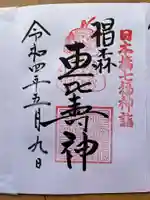 日本橋七福神詣
椙森
恵比寿神
令和四年五月九日